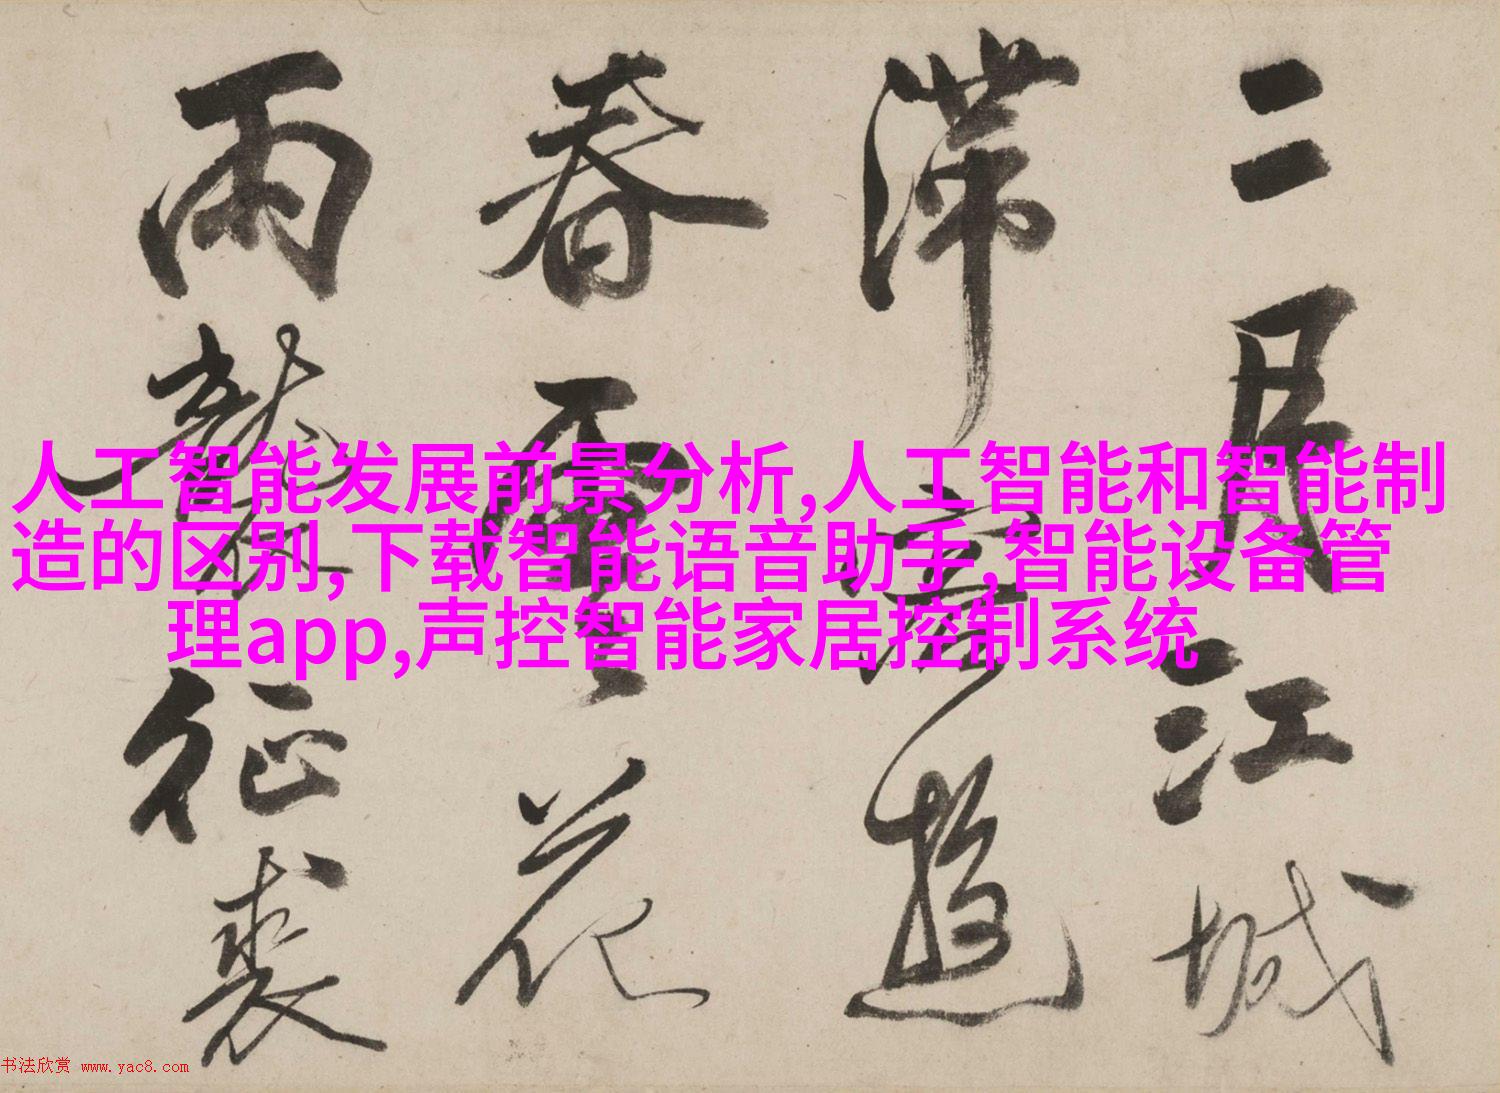 二月江城
滯客遊
春雲花
雨襲征裘
人工智能发展前景分析,人工智能和智能制
造的区别,下载智能语音助手,智能设备管
理app,声控智能家居控制系统
书法欣赏 www.yac8.com